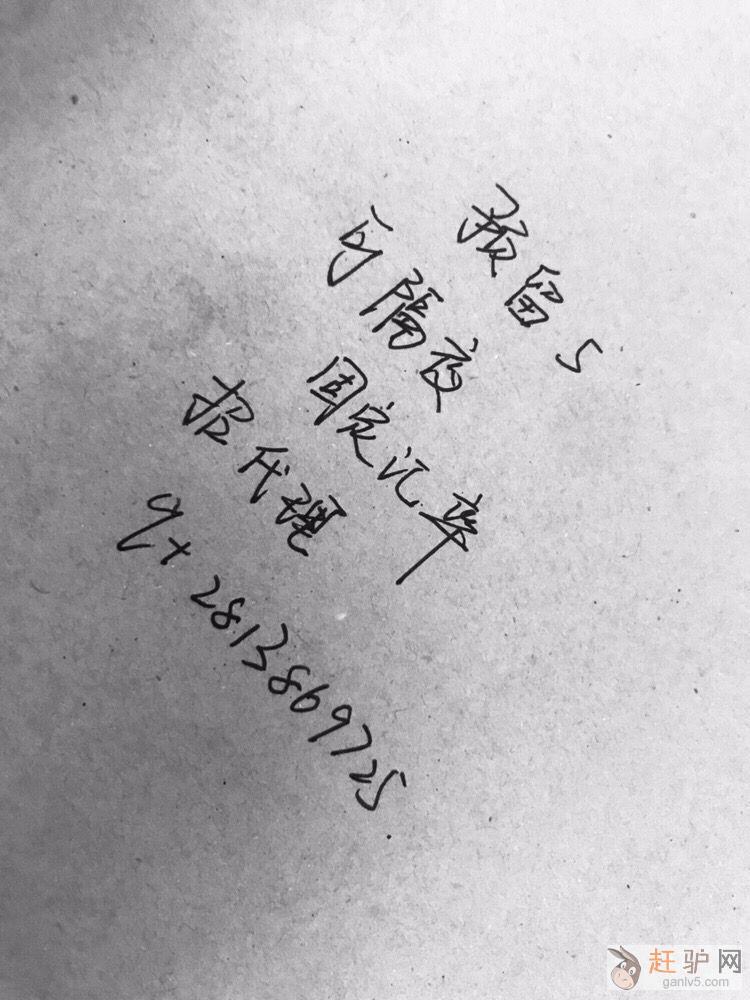 预留5
可隔夜
固定汇率
报代理
q+2813869725
赶驴网
ganlv5.com